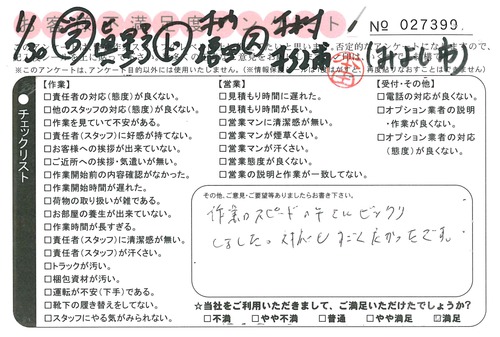 お客様不満足度アンケート
№ 027399
(みよし市)
※このアンケートは、アンケート目的以外には使用いたしません。
チェックリスト
【作業】
□責任者の対応(態度)が良くない。
□他のスタッフの対応(態度)が良くない。
□作業を見ていて不安がある。
□責任者(スタッフ)に好感が持てない。
□お客様への挨拶が出来ていない。
□ご近所への挨拶・気遣いが無い。
□作業開始前の内容確認がなかった。
□作業開始時間が遅れた。
□荷物の取り扱いが雑である。
□お部屋の養生が出来ていない。
□作業時間が長すぎる。
□責任者(スタッフ)に清潔感が無い。
□責任者(スタッフ)が汗くさい。
□トラックが汚い。
□梱包資材が汚い。
□運転が不安(下手)である。
□靴下の履き替えをしてない。
□スタッフにやる気がみられない。
【営業】
□見積もり時間に遅れた。
□見積もり時間が長い。
□営業マンに清潔感が無い。
□営業マンが煙草くさい。
□営業マンが汗くさい。
□営業態度が良くない。
□営業の説明と作業が一致してない。
【受付・その他】
□電話の対応が良くない。
□オプション業者の説明
・作業が良くない。
□オプション業者の対応
(態度)が良くない。
その他、ご意見・ご要望等ありましたらお書き下さい。
作業のスピードの早さにビックリ
しました。対応もすごく良かったです。
☆当社をご利用いただきまして、ご満足いただけたでしょうか?
□不満 □やや不満 □普通 □やや満足 ☑満足